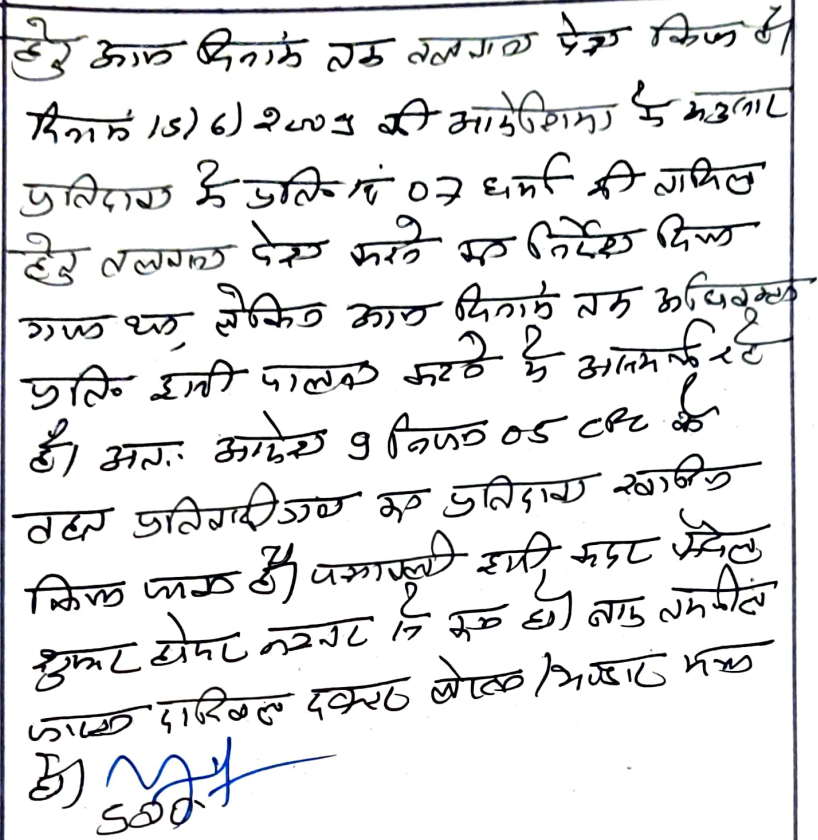 हेतु आज दिनांक तक तलवाना पेश किया है।
दिनांक 15/6/2005 की आदेशिका के अनुसार
प्रतिदावा के प्रति० सं 07 धर्मा की तामिल
हेतु तलवाना पेश करने का निर्देश दिया
गया था, लेकिन आज दिनांक तक अधिवक्ता
प्रति० इसकी पालना करने में असमर्थ रहे
है। अतः आदेश 9 नियम 05 CPC के
तहत प्रतिवादीगण का प्रतिदावा खारिज
किया जाता है। पत्रावली इसी कदर फैसल
शुमार होकर नम्बर से कम हो। बाद तकमील
जाब्ता दाखिल दफ्तर हो
है।
S.D.O.